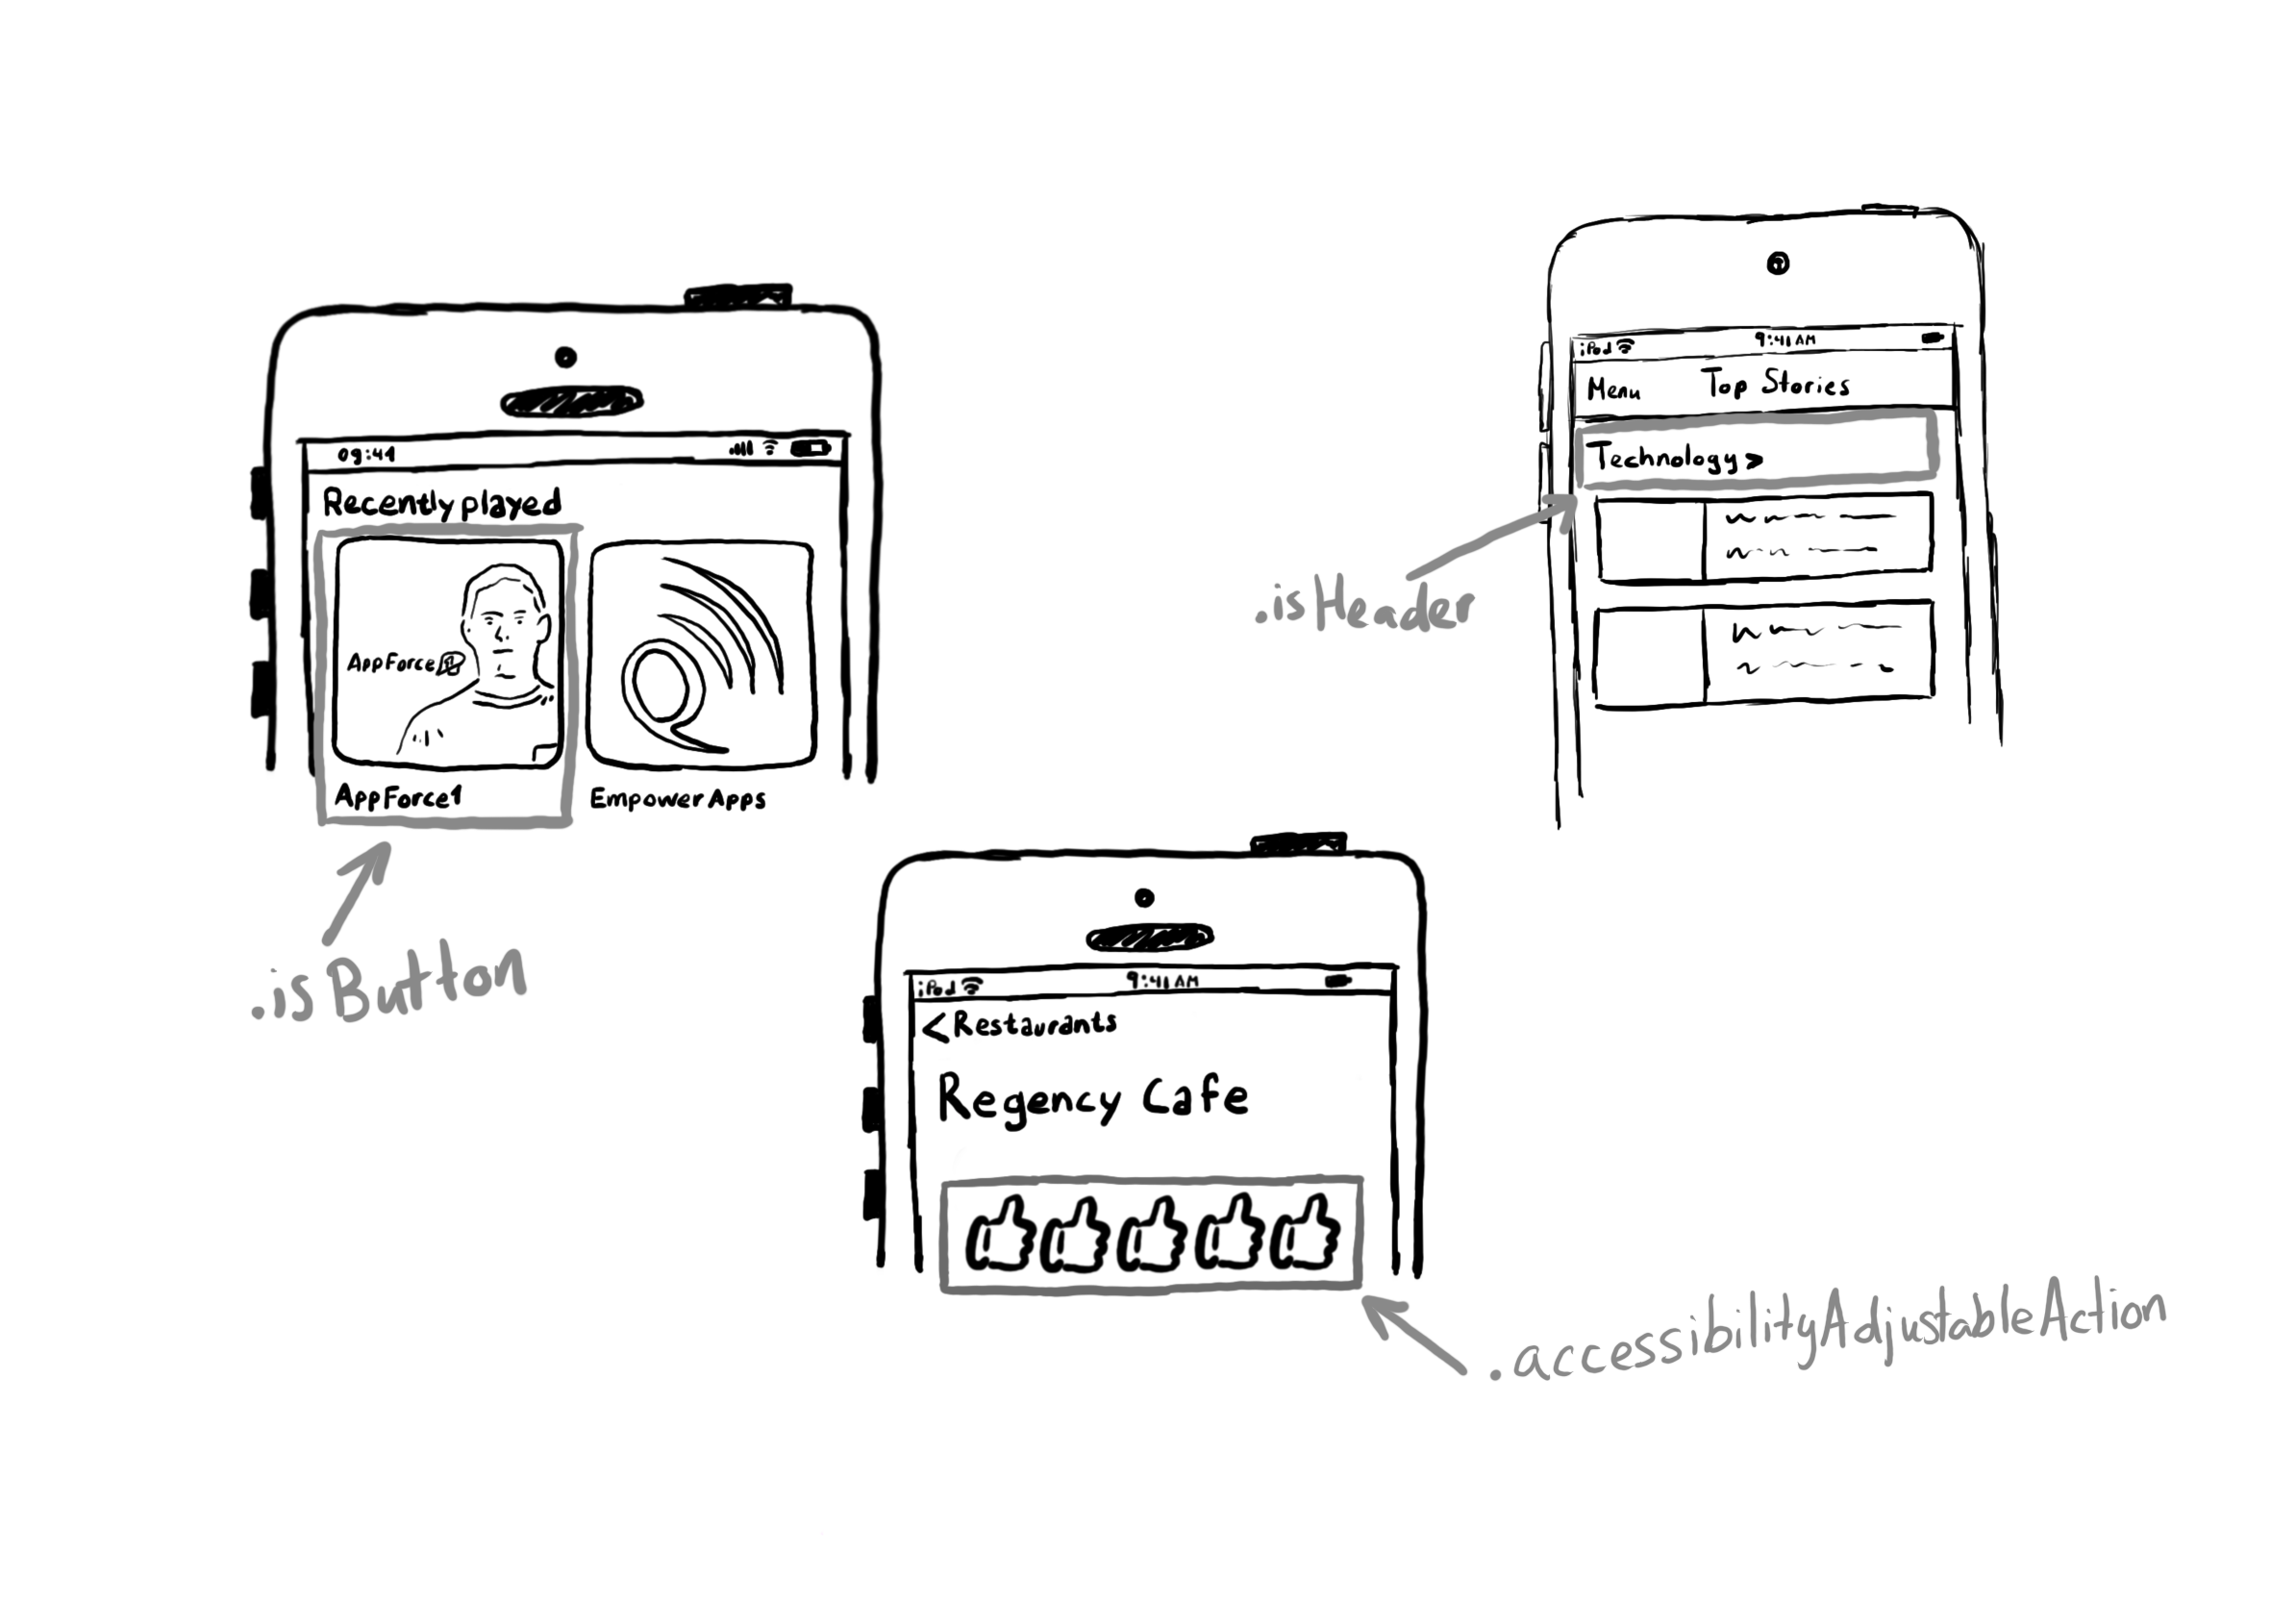 09:41
Recently played
AppForce1
AppForce1
Empower Apps
.isButton
iPod 9:41 AM
Menu Top Stories
Technology >
.isHeader
iPod 9:41 AM
< Restaurants
Regency Cafe
.accessibilityAdjustableAction